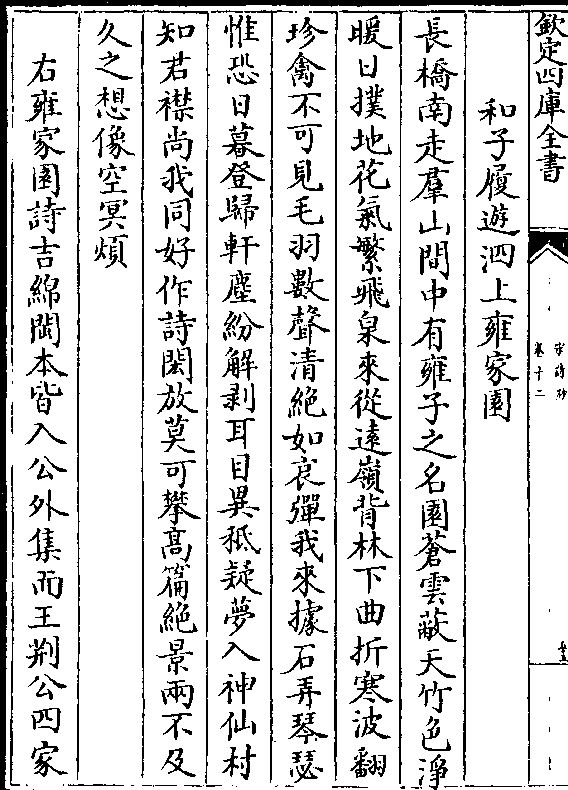 欽定四庫全書
宋詩鈔
卷十二
和子履遊泗上雍家園
長橋南走羣山間中有雍子之名園蒼雲蔽天竹色淨
暖日撲地花氣繁飛泉來從遠嶺背林下曲折寒波翻
珍禽不可見毛羽數聲清絶如哀彈我來據石弄琴瑟
惟恐日暮登歸軒塵紛解剥耳目異秪疑夢入神仙村
知君襟尚我同好作詩閎放莫可攀高篇絶景兩不及
久之想像空冥煩
右雍家園詩吉綿閩本皆入公外集而王荆公四家